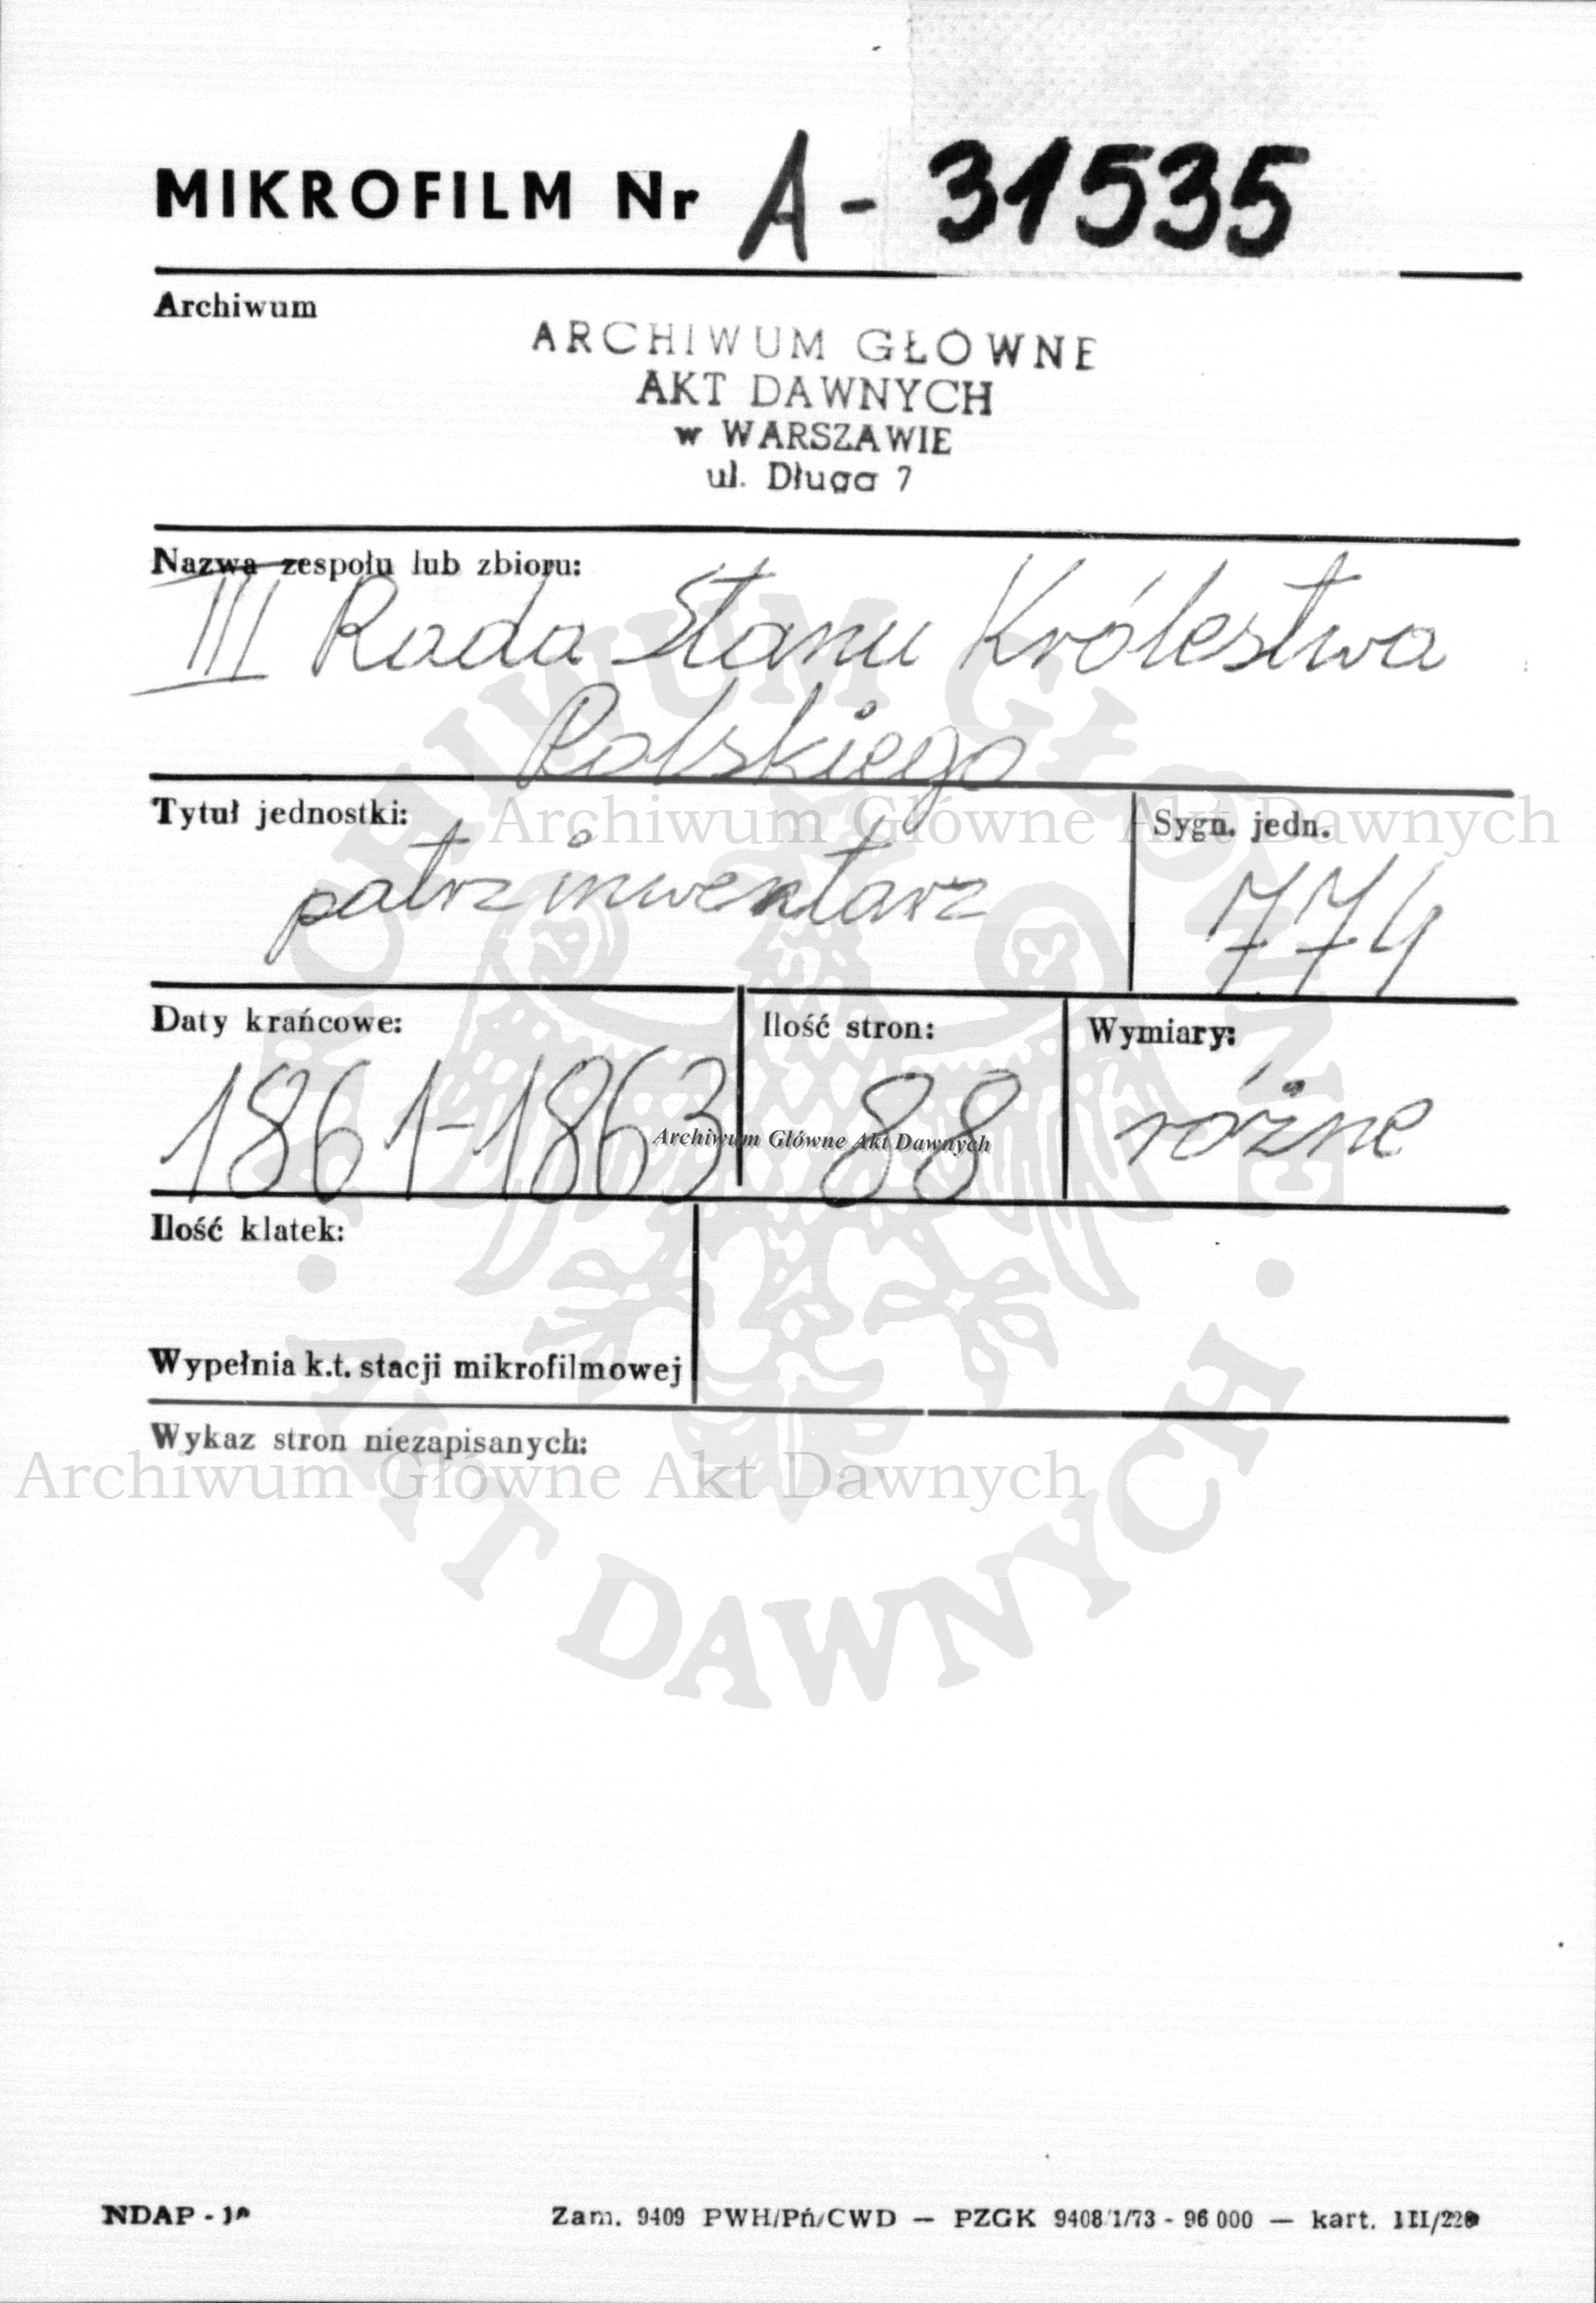 MIKROFILM Nr A - 31535
Archiwum
ARCHIWUM GŁÓWNE
AKT DAWNYCH
w WARSZAWIE
ul. Długa 7
Nazwa zespołu lub zbioru:
III Rada Stanu Królestwa
Polskiego
Tytuł jednostki:
patrz inwentarz
Sygn. jedn.
774
Daty krańcowe:
1861-1863
Ilość stron:
88
Wymiary:
różne
Ilość klatek:
Wypełnia k.t. stacji mikrofilmowej
Wykaz stron niezapisanych:
Archiwum Główne Akt Dawnych
Archiwum Główne Akt Dawnych
Archiwum Główne Akt Dawnych
ARCHIWUM GŁÓWNE · AKT DAWNYCH ·
NDAP -
Zam. 9409 PWH/Pń/CWD — PZGK 9408/1/73 - 96 000 — kart. III/220